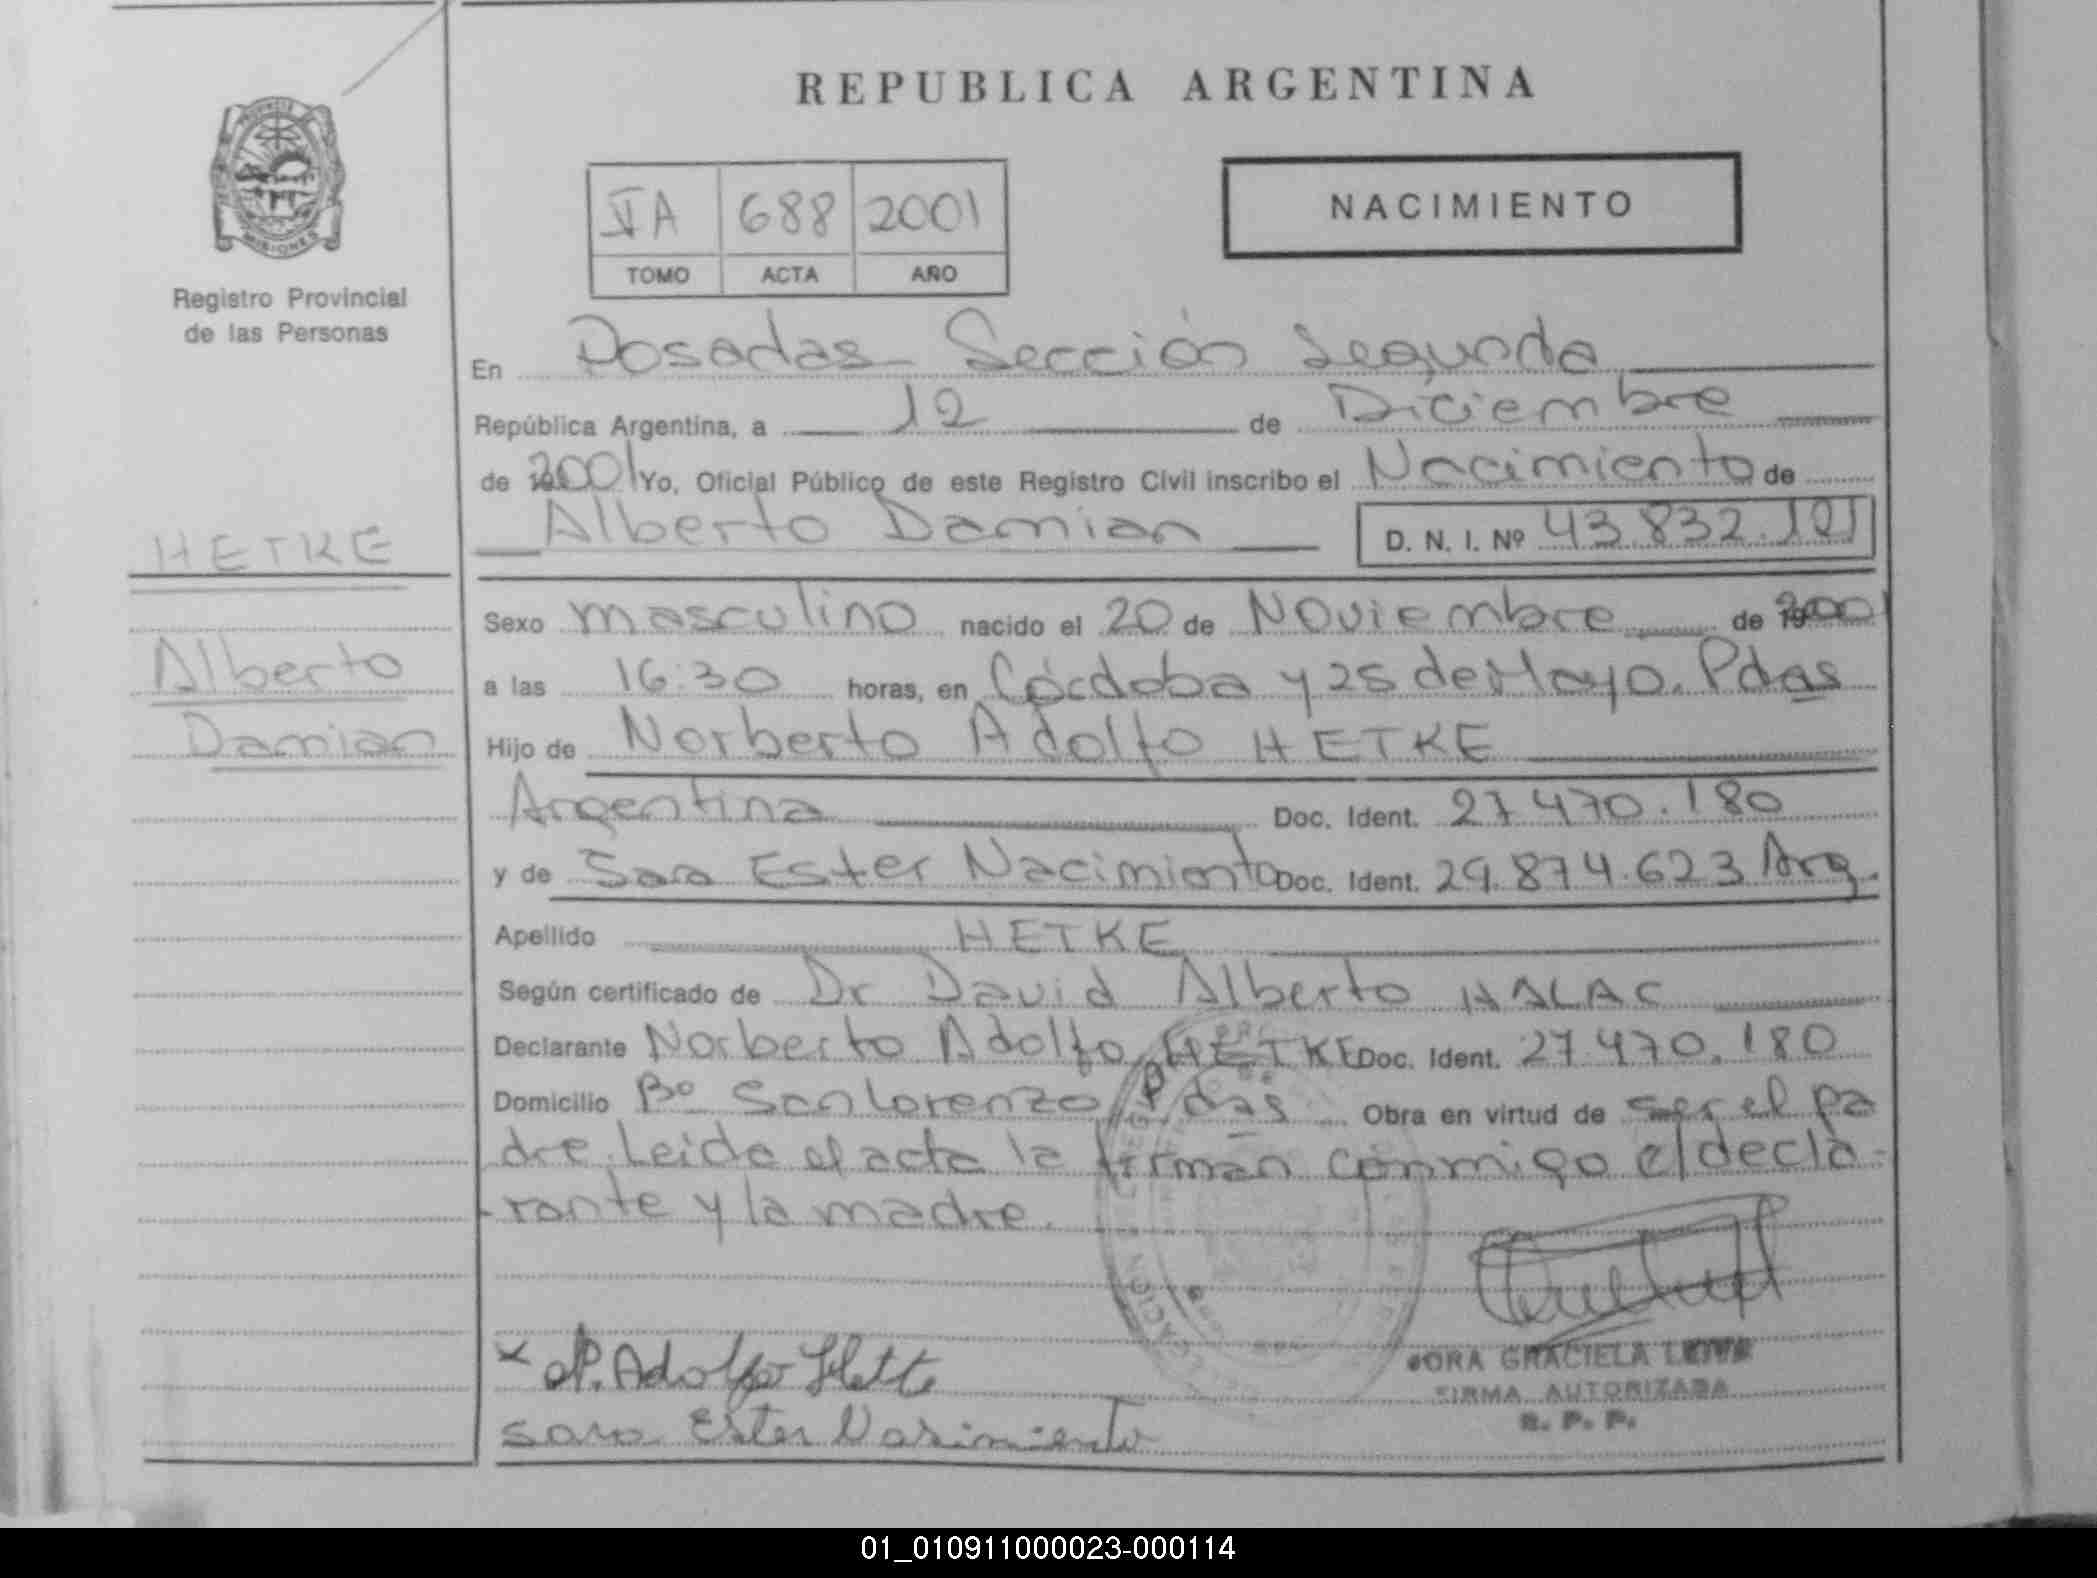 REPUBLICA ARGENTINA
PROVINCIA
MISIONES
Registro Provincial
de las Personas
VA 688 2001
TOMO ACTA AÑO
NACIMIENTO
En Posadas Sección Segunda
República Argentina, a 12 de Diciembre
de 2001 Yo, Oficial Público de este Registro Civil inscribo el Nacimiento de
Alberto Damian D. N. I. Nº 43.832.121
HETKE
Alberto
Damian
Sexo masculino nacido el 20 de Noviembre de 2001
a las 16:30 horas, en Córdoba y 25 de Mayo. Pdas
Hijo de Norberto Adolfo HETKE
Argentina Doc. Ident. 27.470.180
y de Sara Ester Nacimiento Doc. Ident. 29.874.623 Arg.
Apellido HETKE
Según certificado de Dr David Alberto HALAC
Declarante Norberto Adolfo HETKE Doc. Ident. 27.470.180
Domicilio Bº San Lorenzo Pdas Obra en virtud de ser el pa
dre. Leida el acta la firman conmigo el decla-
rante y la madre.
x N. Adolfo Hetke
Sara Ester Nasimiento
GRACIELA
FIRMA AUTORIZADA
R. P. P.
01_010911000023-000114